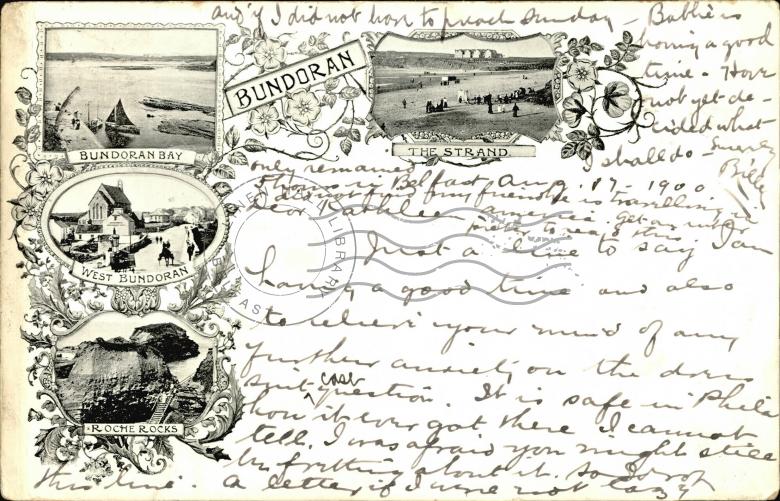 BUNDORAN
BUNDORAN BAY
THE STRAND
WEST BUNDORAN
ROCHE ROCKS
Belfast Aug. 17. 1900
Dear Kathleen
Just a line to say I am
having a good time and also
to relieve your mind of any
further anxiety on the dress
suit case question. It is safe in Phila
how it ever got there I cannot
tell. I was afraid you might still
be fretting about it. So I drop
this line. A letter if I were not lazy
and if I did not have to preach Sunday – Babbie is
having a good
time – Have
not yet de-
cided what
I shall do –
Billy
only remained
friend is travelling in
LIBRARY